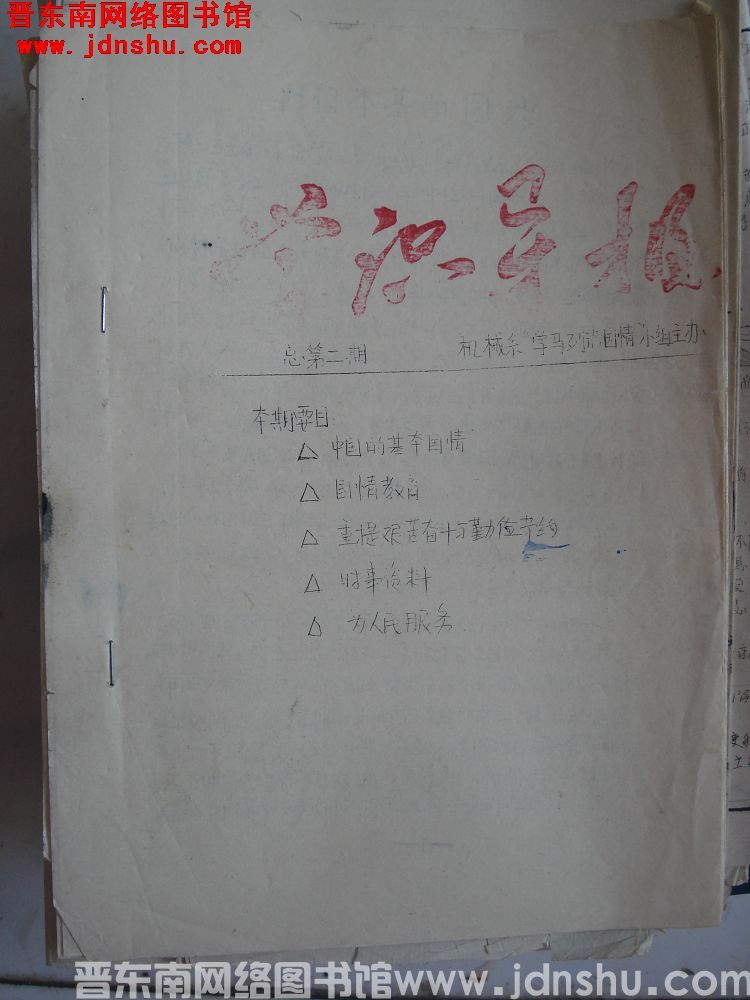 晋东南网络图书馆
www.jdnshu.com
总第二期 机械系"学马列懂国情"小组主办
本期要目:
△ 中国的基本国情
△ 国情教育
△ 重提艰苦奋斗勤俭节约
△ 时事资料
△ 为人民服务
晋东南网络图书馆www.jdnshu.com